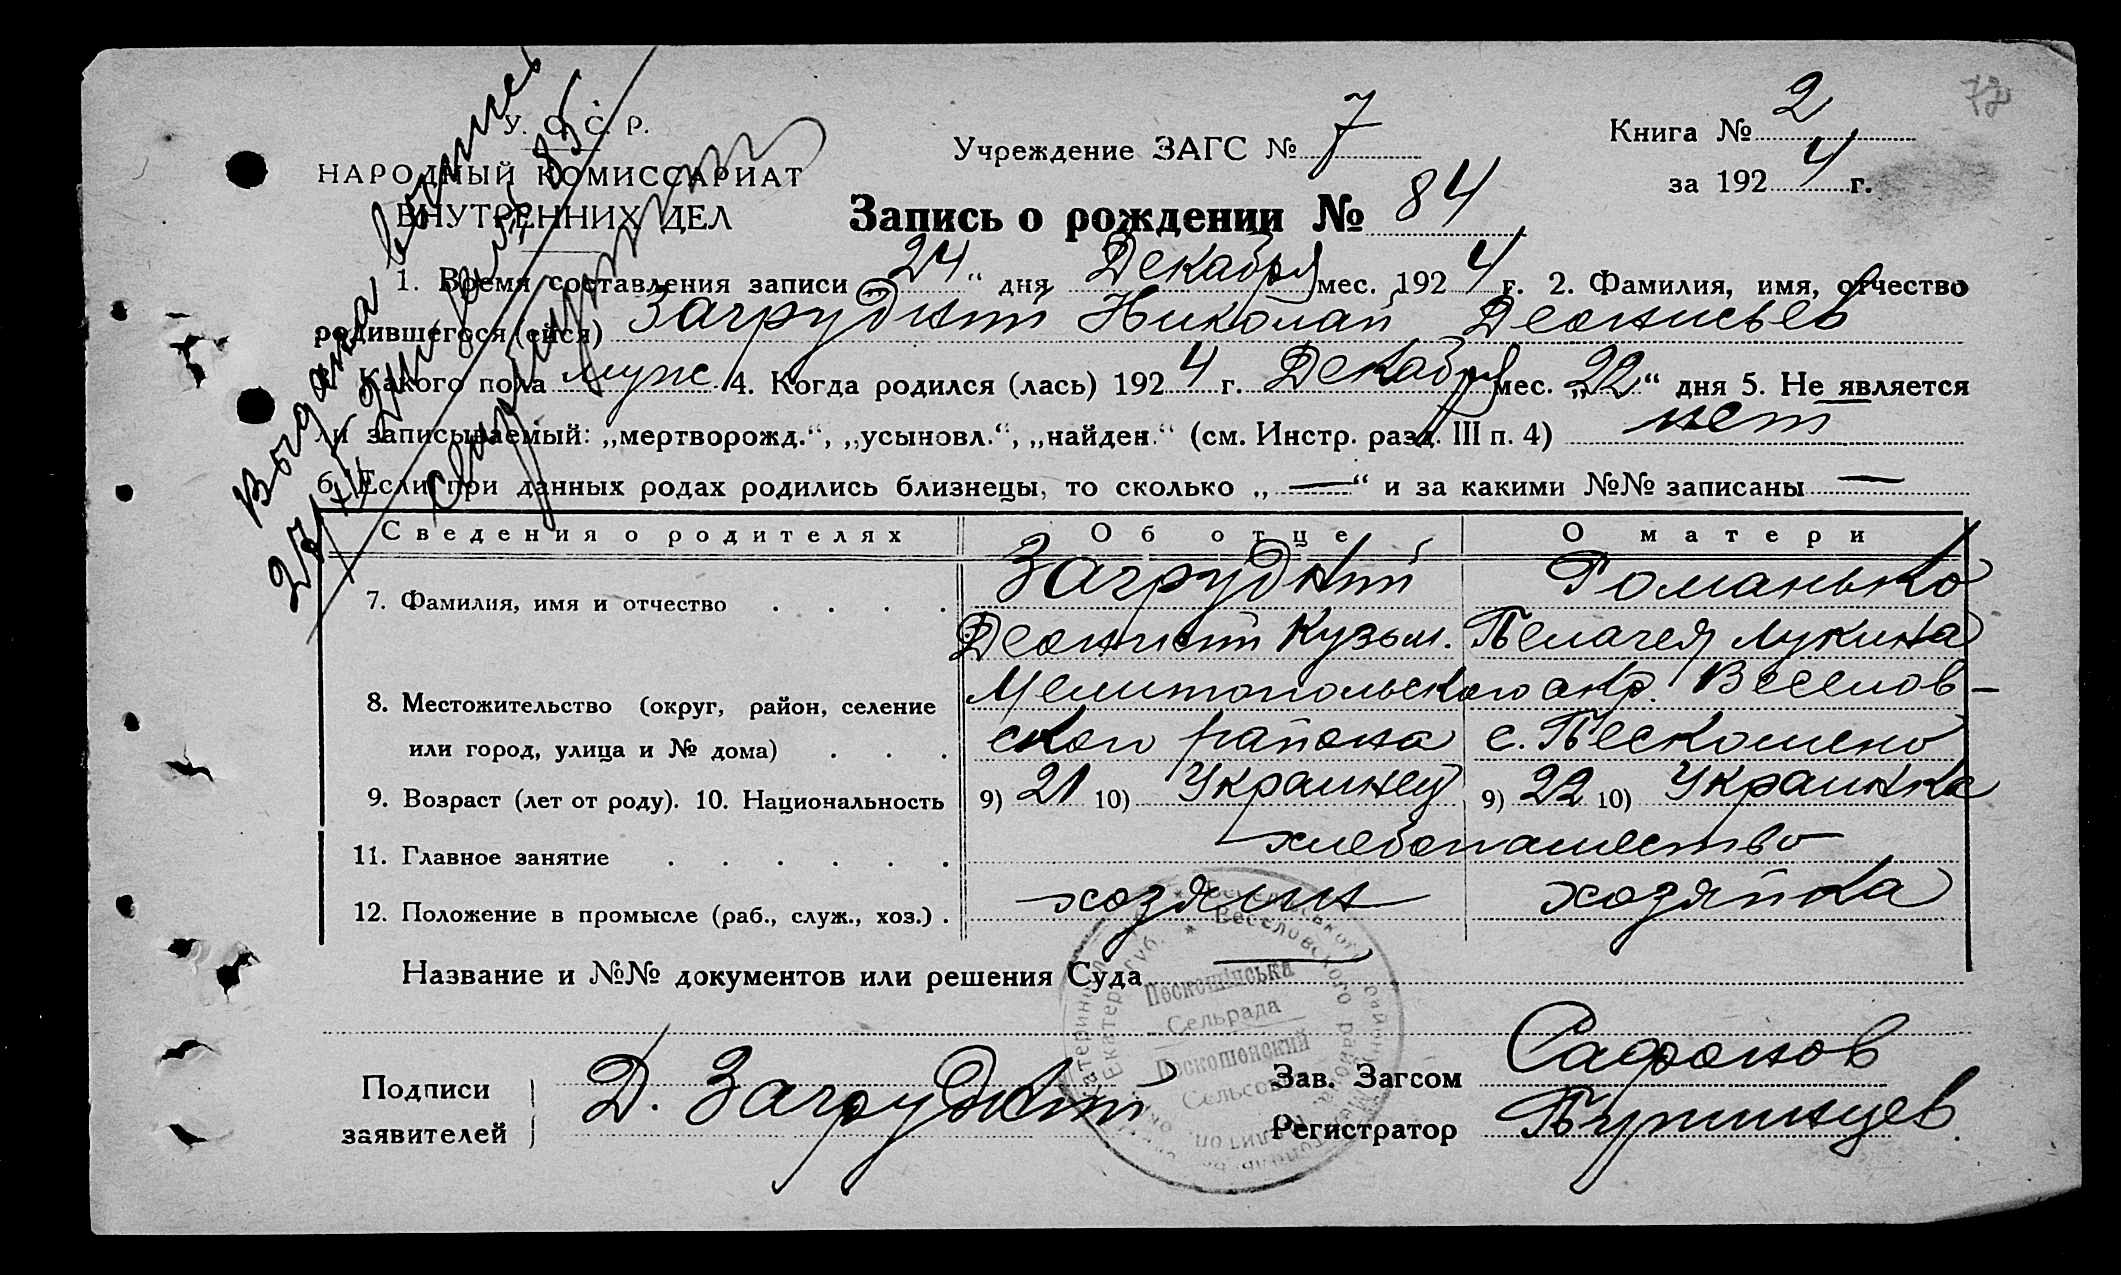 72
У. С. С. Р.
НАРОДНЫЙ КОМИССАРИАТ
ВНУТРЕННИХ ДЕЛ
Учреждение ЗАГС № 7
Книга № 2
за 1924 г.
Запись о рождении № 84
1. Время составления записи „24“ дня Декабря мес. 1924 г. 2. Фамилия, имя, отчество
родившегося (ейся) Загрудний Николай Деонисьев
3. Какого пола муж 4. Когда родился (лась) 1924 г. Декабря мес. „22“ дня 5. Не является
ли записываемый: „мертворожд.“, „усыновл.“, „найден.“ (см. Инстр. разд. III п. 4) нет
6. Если при данных родах родились близнецы, то сколько „—“ и за какими №№ записаны —
Выдана
Сведения о родителях Об отце О матери
7. Фамилия, имя и отчество . . . . Загрудний Романько
Деонисий Кузьм. Пелагея Лукина
8. Местожительство (округ, район, селение Мелитопольского окр. Веселов-
или город, улица и № дома) . . . ского района с. Пескошено
9. Возраст (лет от роду). 10. Национальность 9) 21 10) Украинец 9) 22 10) Украинка
11. Главное занятие . . . . . . хлебопашество
12. Положение в промысле (раб., служ., хоз.) . хозяин хозяйка
Название и №№ документов или решения Суда —
Веселовского района
Пескошінська
Сельрада
Пескошенский
Сельсовет
Подписи
заявителей
Д. Загрудний
Зав. Загсом Сафонов
Регистратор